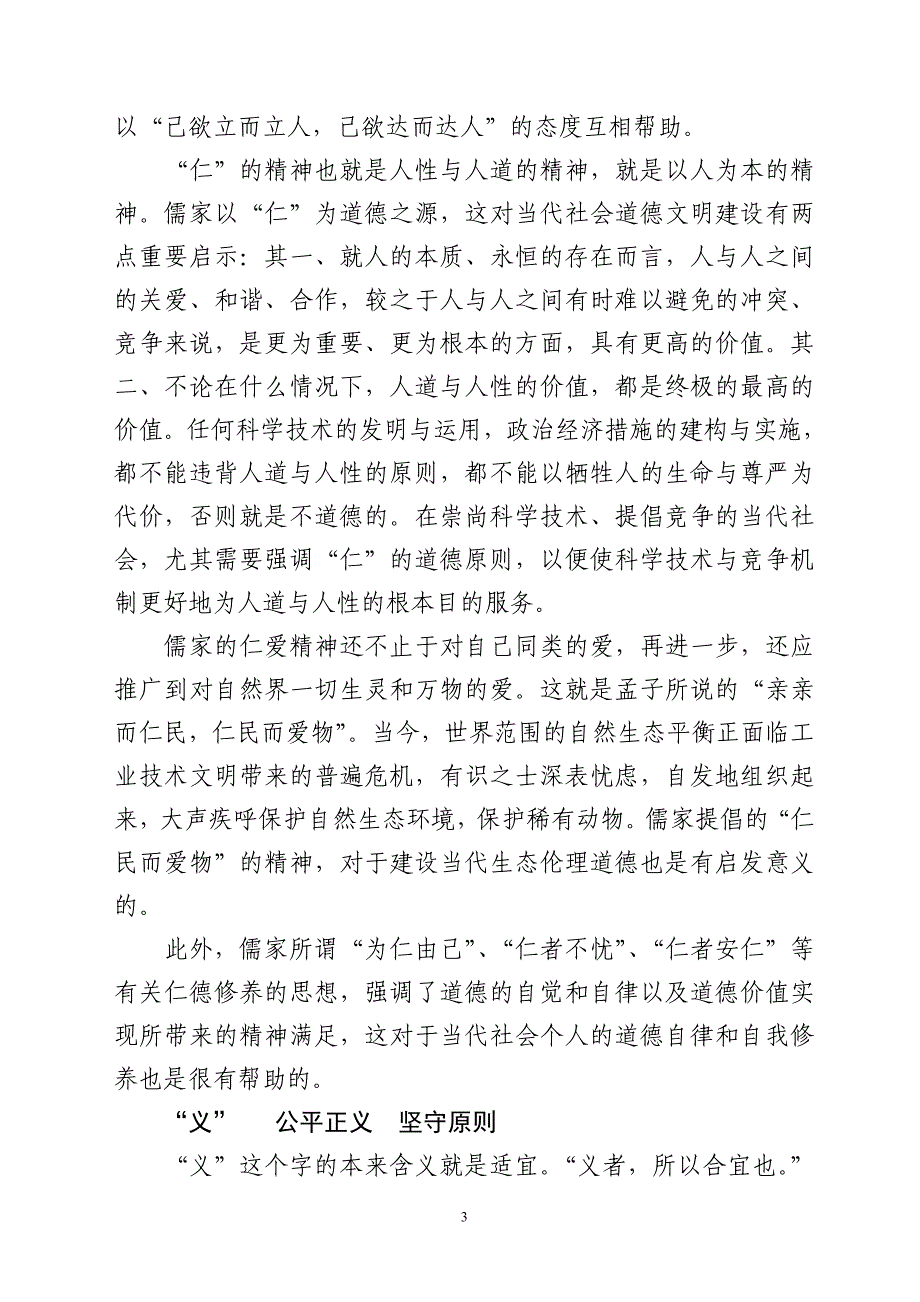 以“己欲立而立人，己欲达而达人”的态度互相帮助。
“仁”的精神也就是人性与人道的精神，就是以人为本的精
神。儒家以“仁”为道德之源，这对当代社会道德文明建设有两
点重要启示：其一、就人的本质、永恒的存在而言，人与人之间
的关爱、和谐、合作，较之于人与人之间有时难以避免的冲突、
竞争来说，是更为重要、更为根本的方面，具有更高的价值。其
二、不论在什么情况下，人道与人性的价值，都是终极的最高的
价值。任何科学技术的发明与运用，政治经济措施的建构与实施，
都不能违背人道与人性的原则，都不能以牺牲人的生命与尊严为
代价，否则就是不道德的。在崇尚科学技术、提倡竞争的当代社
会，尤其需要强调“仁”的道德原则，以便使科学技术与竞争机
制更好地为人道与人性的根本目的服务。
儒家的仁爱精神还不止于对自己同类的爱，再进一步，还应
推广到对自然界一切生灵和万物的爱。这就是孟子所说的“亲亲
而仁民，仁民而爱物”。当今，世界范围的自然生态平衡正面临工
业技术文明带来的普遍危机，有识之士深表忧虑，自发地组织起
来，大声疾呼保护自然生态环境，保护稀有动物。儒家提倡的“仁
民而爱物”的精神，对于建设当代生态伦理道德也是有启发意义
的。
此外，儒家所谓“为仁由己”、“仁者不忧”、“仁者安仁”等
有关仁德修养的思想，强调了道德的自觉和自律以及道德价值实
现所带来的精神满足，这对于当代社会个人的道德自律和自我修
养也是很有帮助的。
“义”　公平正义　坚守原则
“义”这个字的本来含义就是适宜。“义者，所以合宜也。”
3